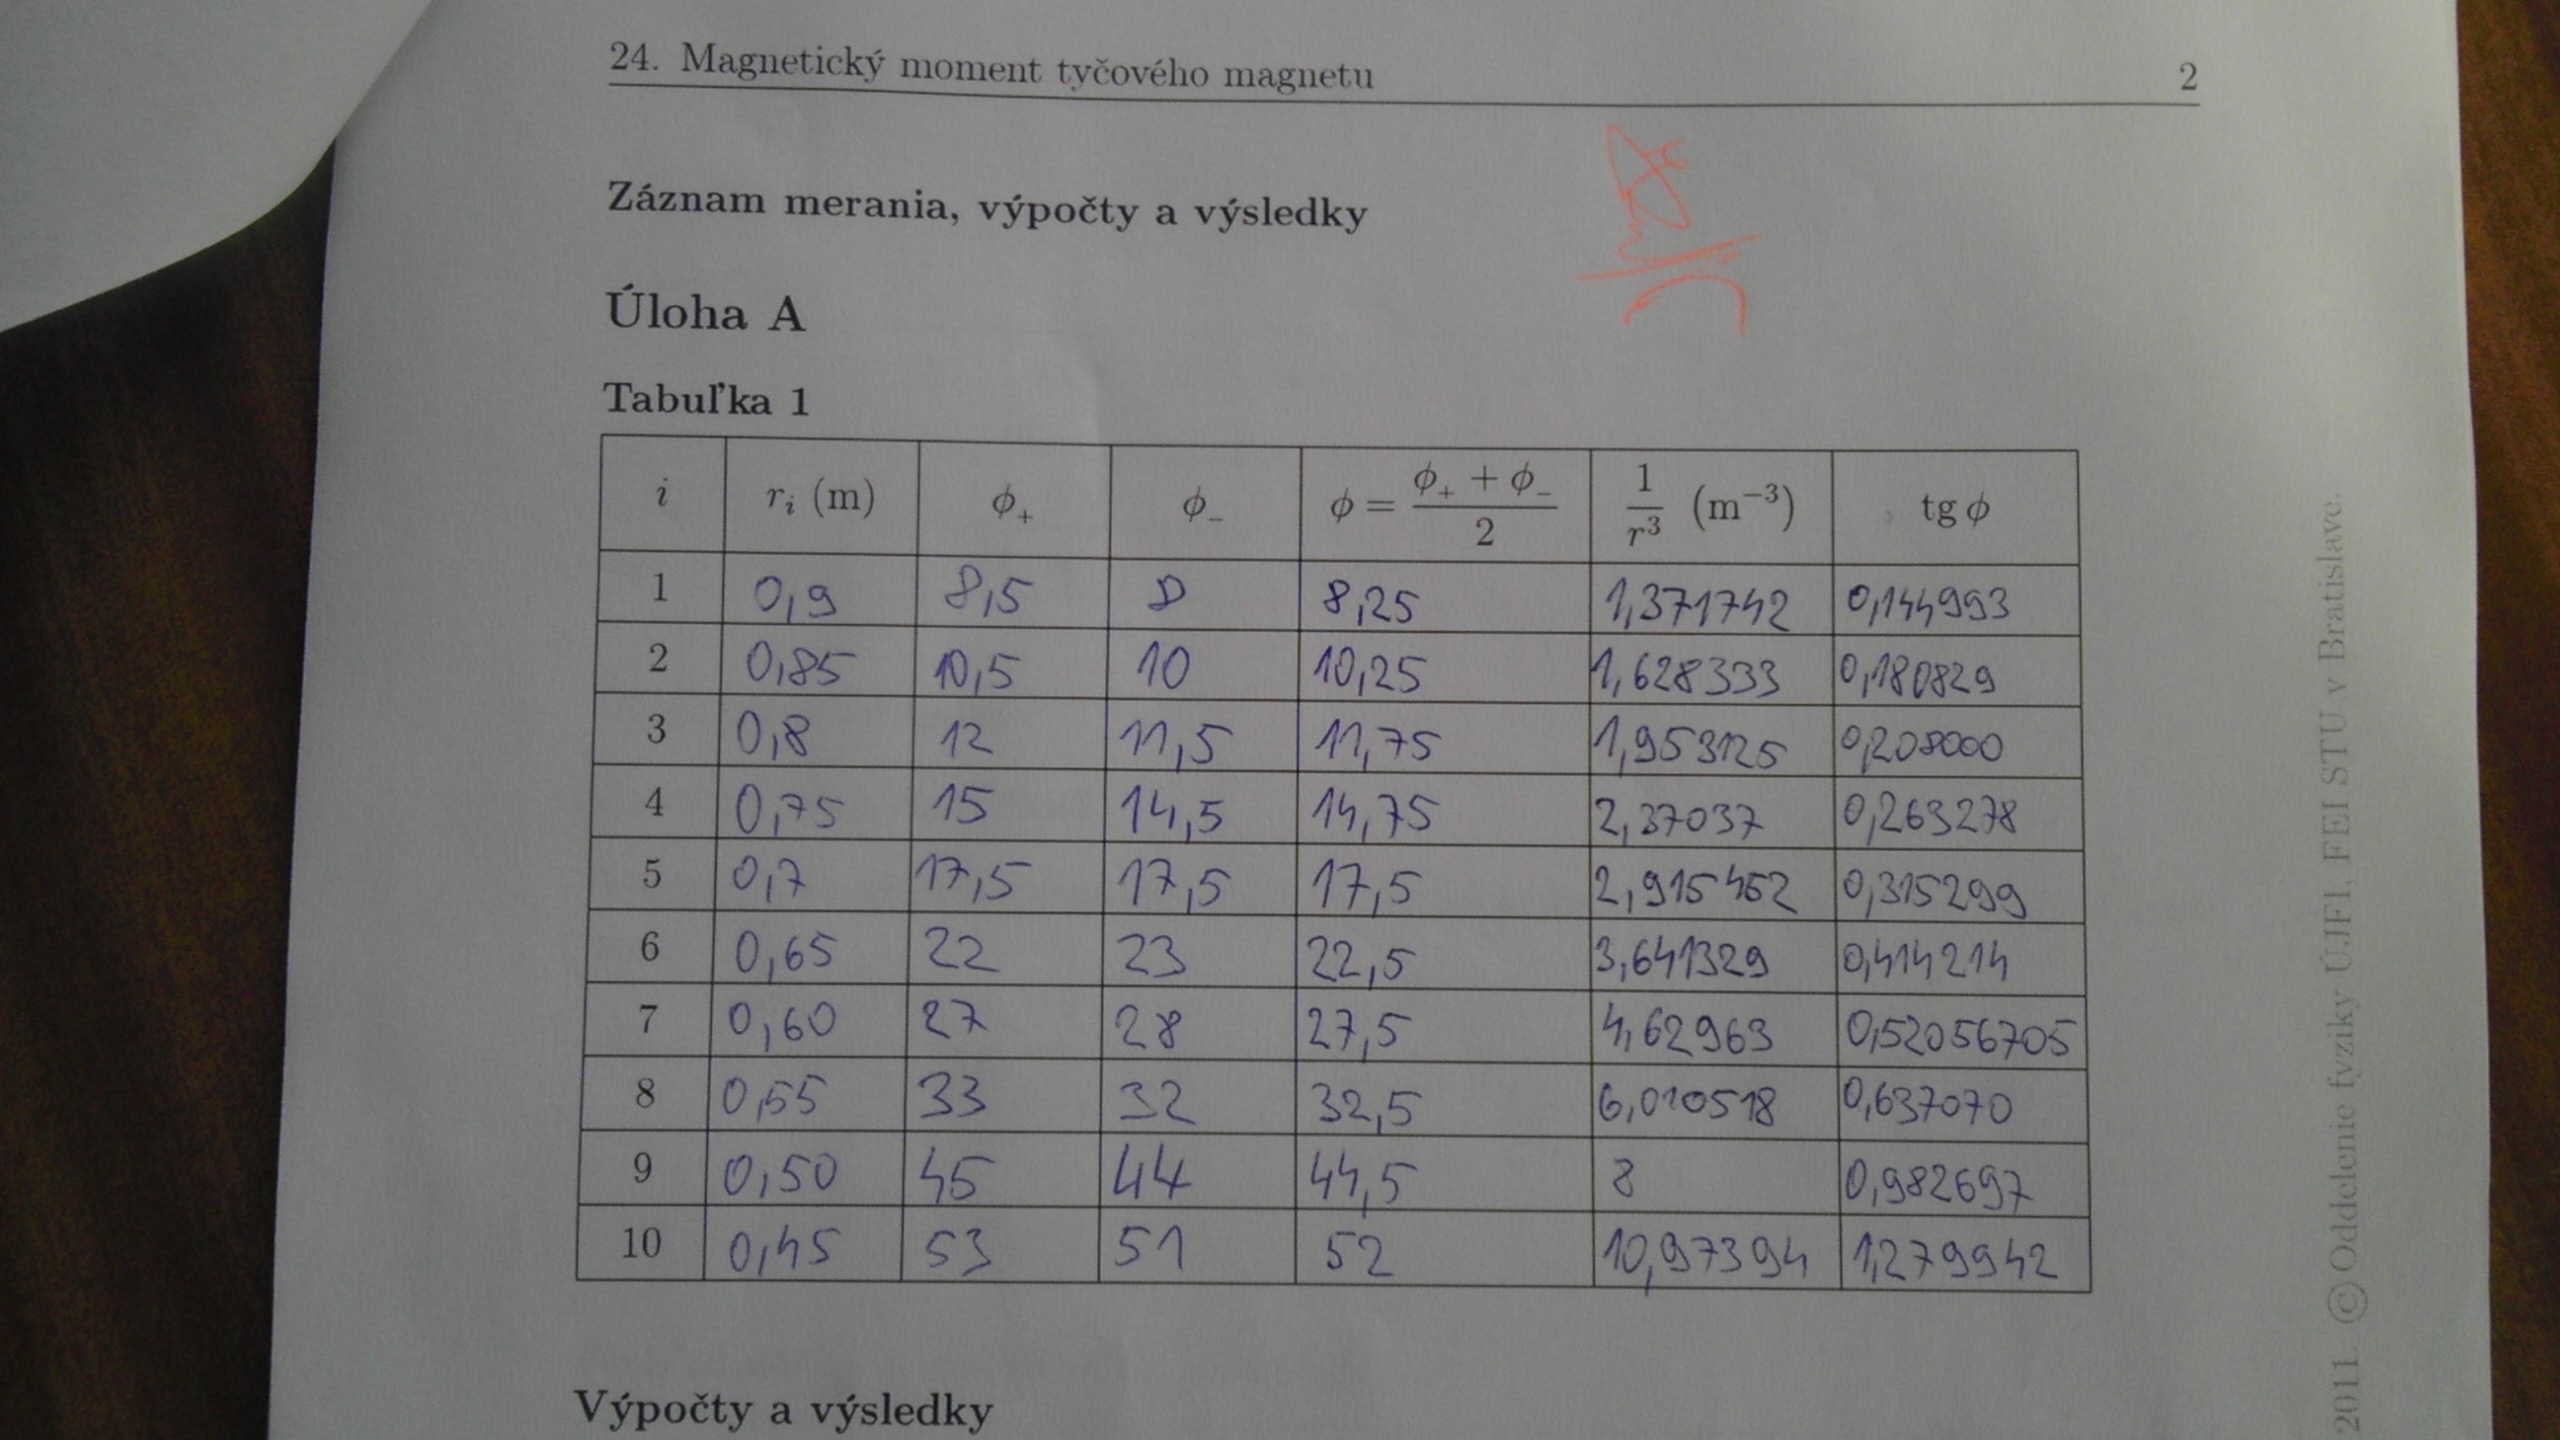 24. Magnetický moment tyčového magnetu 2
Záznam merania, výpočty a výsledky
Úloha A
Tabuľka 1
i r_i (m) ϕ_+ ϕ_- ϕ = (ϕ_+ + ϕ_-)/2 1/r^3 (m^-3) tg ϕ
1 0,9 8,5 8 8,25 1,371742 0,144993
2 0,85 10,5 10 10,25 1,628333 0,180829
3 0,8 12 11,5 11,75 1,953125 0,208000
4 0,75 15 14,5 14,75 2,37037 0,263278
5 0,7 17,5 17,5 17,5 2,915452 0,315299
6 0,65 22 23 22,5 3,641329 0,414214
7 0,60 27 28 27,5 4,62963 0,52056705
8 0,55 33 32 32,5 6,010518 0,637070
9 0,50 45 44 44,5 8 0,982697
10 0,45 53 51 52 10,97394 1,279942
Výpočty a výsledky
2011. ©Oddelenie fyziky ÚJFI, FEI STU v Bratislave.